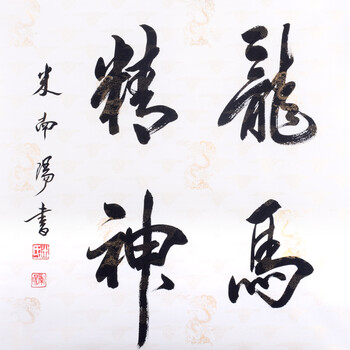 龍馬
精神
米南陽書